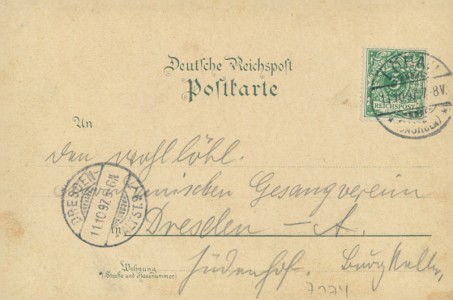 Deutsche Reichspost
Postkarte
An
den wohllöbl.
Gesangverein
in Dresden - A.
Jüdenhof.
Wohnung
(Straße und Hausnummer)
7774
REICHSPOST
DRESDEN ALTST.
11.10.97.